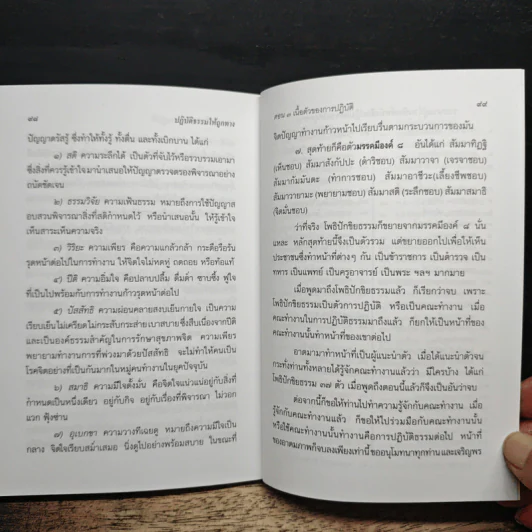 ๙๘ ปฏิบัติธรรมให้ถูกทาง
ปัญญาตรัสรู้ ซึ่งทำให้ทั้งรู้ ทั้งตื่น และทั้งเบิกบาน ได้แก่
๑) สติ ความระลึกได้ เป็นตัวที่จับไว้หรือรวบรวมเอามา
ซึ่งสิ่งที่ควรรู้เข้ามานำเสนอให้ปัญญาตรวจตรองพิจารณาอย่าง
ถนัดชัดเจน
๒) ธรรมวิจัย ความเฟ้นธรรม หมายถึงการใช้ปัญญาส
อบสวนพิจารณาสิ่งที่สติกำหนดไว้ หรือนำเสนอนั้น ให้รู้เข้าใจ
เห็นสาระเห็นความจริง
๓) วิริยะ ความเพียร คือความแกล้วกล้า กระตือรือร้น
รุดหน้าต่อไปในการทำงาน ให้จิตใจไม่หดหู่ ถดถอย หรือท้อแท้
๔) ปีติ ความอิ่มใจ คือปลาบปลื้ม ดื่มด่ำ ซาบซึ้ง ฟูใจ
ที่เป็นไปพร้อมกับการทำงานก้าวรุดหน้าต่อไป
๕) ปัสสัทธิ ความผ่อนคลายสงบเย็นกายใจ เป็นความ
เรียบเย็นไม่เครียดไม่กระสับกระส่ายเบาสบายซึ่งสืบเนื่องจากปีติ
และเป็นองค์ธรรมสำคัญในการรักษาสุขภาพจิต ความเพียร
พยายามทำงานการที่พ่วงมาด้วยปัสสัทธิ จะไม่ทำให้คนเป็น
โรคจิตอย่างที่เป็นกันมากในหมู่คนทำงานในยุคปัจจุบัน
๖) สมาธิ ความมีใจตั้งมั่น คือจิตใจแน่วแน่อยู่กับสิ่งที่
กำหนดเป็นหนึ่งเดียว อยู่กับกิจ อยู่กับเรื่องที่พิจารณา ไม่วอก
แวก ฟุ้งซ่าน
๗) อุเบกขา ความวางทีเฉยดู หมายถึงความมีใจเป็น
กลาง จิตใจเรียบสม่ำเสมอ นิ่งดูไปอย่างพร้อมสบาย ในขณะที่
ตอน ๓ เนื้อตัวของการปฏิบัติ ๙๙
จิตปัญญาทำงานก้าวหน้าไปเรียบรื่นตามกระบวนการของมัน
๗. สุดท้ายก็คือตัวมรรคมีองค์ ๘ อันได้แก่ สัมมาทิฏฐิ
(เห็นชอบ) สัมมาสังกัปปะ (ดำริชอบ) สัมมาวาจา (เจรจาชอบ)
สัมมากัมมันตะ (ทำการชอบ) สัมมาอาชีวะ(เลี้ยงชีพชอบ)
สัมมาวายามะ (พยายามชอบ) สัมมาสติ (ระลึกชอบ) สัมมาสมาธิ
(จิตมั่นชอบ)
ว่าที่จริง โพธิปักขิยธรรมก็ขยายจากมรรคมีองค์ ๘ นั่น
แหละ หลักสุดท้ายนี้จึงเป็นตัวรวม แต่ขยายออกไปเพื่อให้เห็น
ประชาชนซึ่งทำหน้าที่ต่างๆ กัน เป็นข้าราชการ เป็นตำรวจ เป็น
ทหาร เป็นแพทย์ เป็นครูอาจารย์ เป็นพระ ฯลฯ มากมาย
เมื่อพูดมาถึงโพธิปักขิยธรรมแล้ว ก็เรียกว่าจบ เพราะ
โพธิปักขิยธรรมเป็นตัวการปฏิบัติ หรือเป็นคณะทำงาน เมื่อ
คณะทำงานในการปฏิบัติธรรมมาถึงแล้ว ก็ยกให้เป็นหน้าที่ของ
คณะทำงานนั้นทำหน้าที่ของเขาต่อไป
อาตมามาทำหน้าที่เป็นผู้แนะนำตัว เมื่อได้แนะนำตัวจน
กระทั่งท่านทั้งหลายได้รู้จักคณะทำงานแล้วว่า มีใครบ้าง ได้แก่
โพธิปักขิยธรรม ๓๗ ตัว เมื่อพูดถึงตอนนี้แล้วก็จึงเป็นอันว่าจบ
ต่อจากนี้ก็ขอให้ท่านไปทำความรู้จักกับคณะทำงาน เมื่อ
รู้จักกับคณะทำงานแล้ว ก็ขอให้ไปร่วมมือกับคณะทำงานนั้น
หรือใช้คณะทำงานนั้นทำงานคือการปฏิบัติธรรมต่อไป หน้าที่
ของอาตมภาพก็จบลงเพียงเท่านี้ขออนุโมทนาทุกท่านและเจริญพร